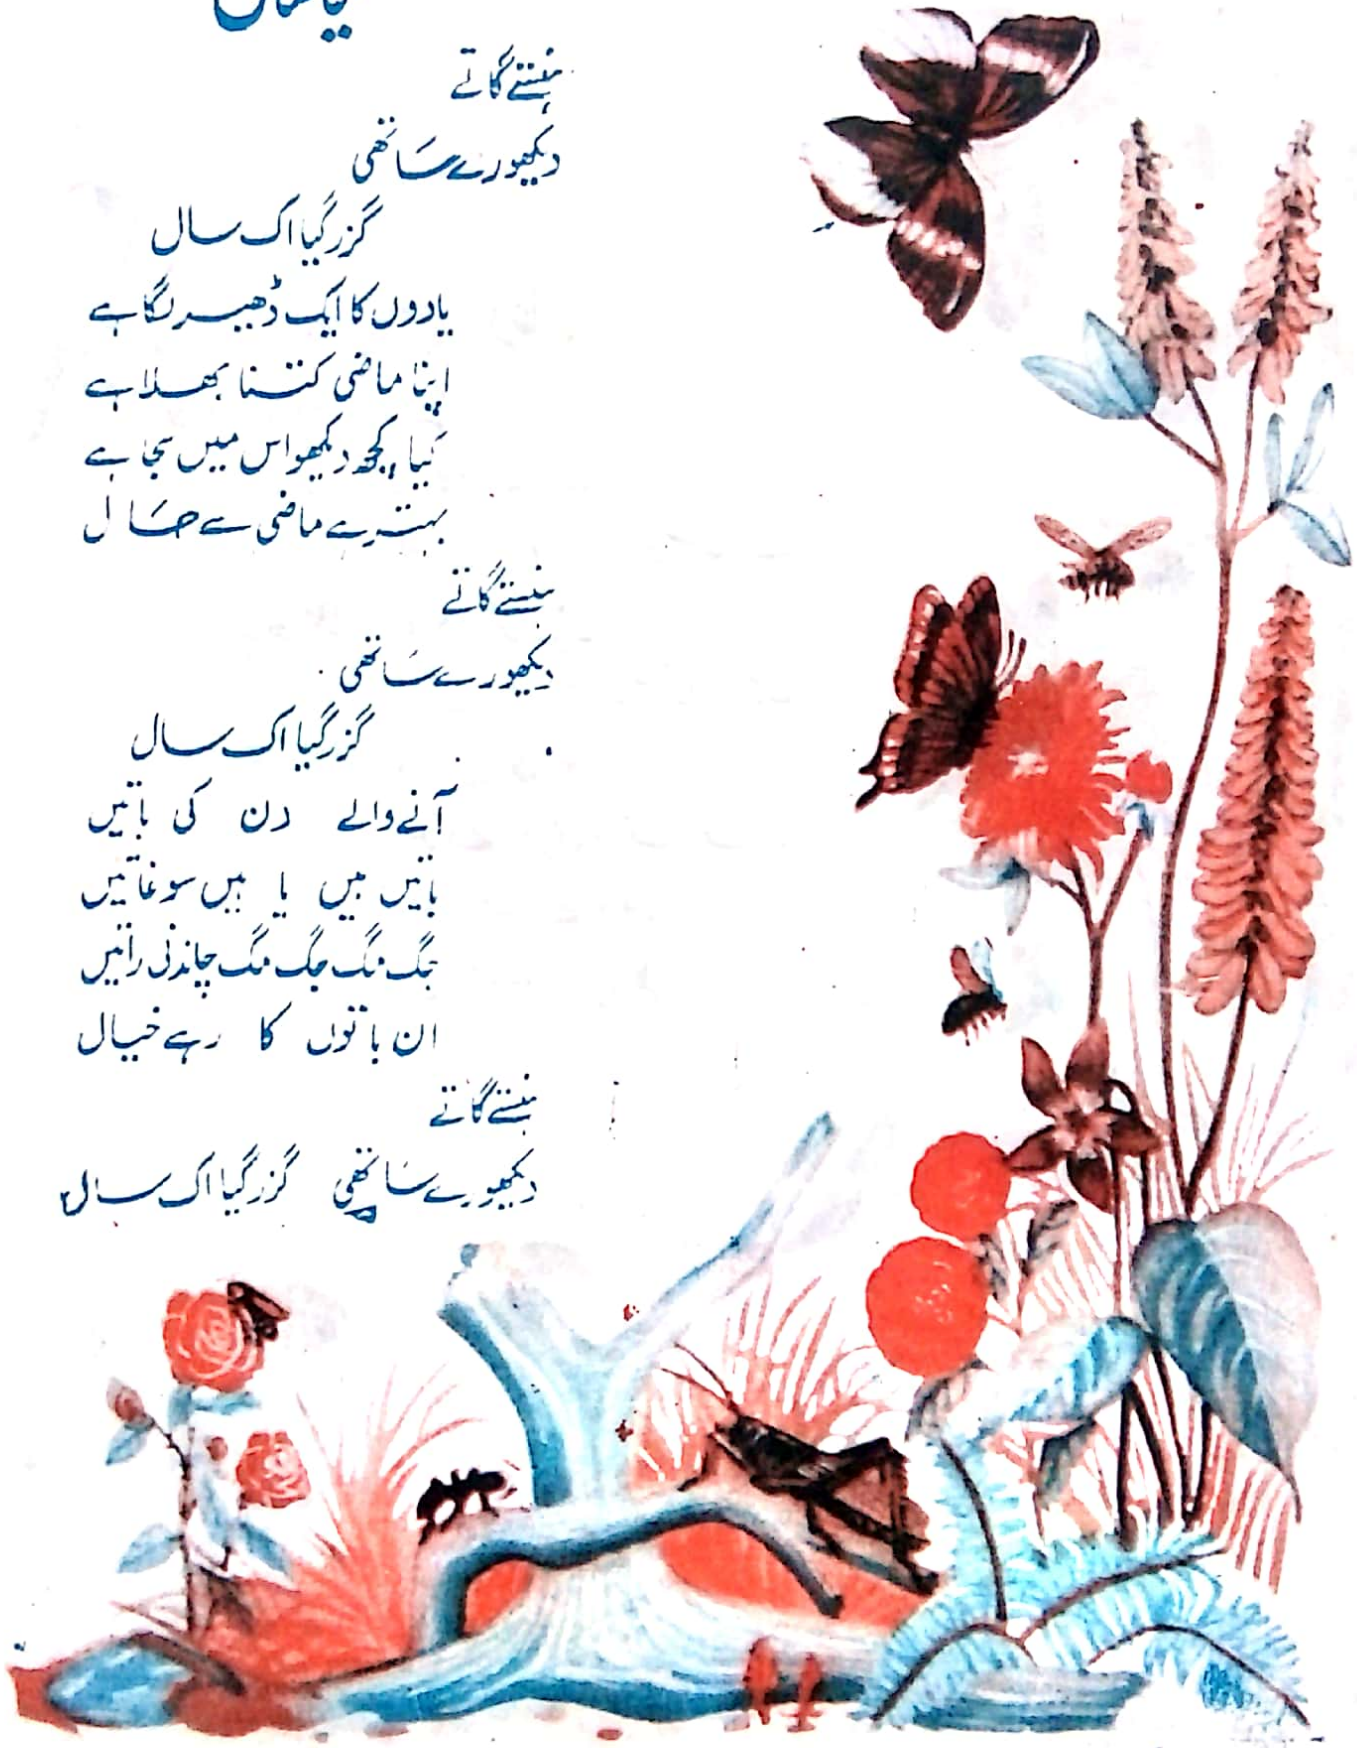 نیا سال
ہنستے گاتے
دیکھو رے ساتھی
گزر گیا اک سال
یادوں کا ایک ڈھیر لگا ہے
اپنا ماضی کتنا بھلا ہے
کیا کچھ دیکھو اس میں سجا ہے
بہتر ہے ماضی سے حال
ہنستے گاتے
دیکھو رے ساتھی
گزر گیا اک سال
آنے والے دن کی باتیں
باتیں ہیں یا ہیں سوغاتیں
جگ مگ جگ مگ چاندنی راتیں
ان باتوں کا رہے خیال
ہنستے گاتے
دیکھو رے ساتھی گزر گیا اک سال